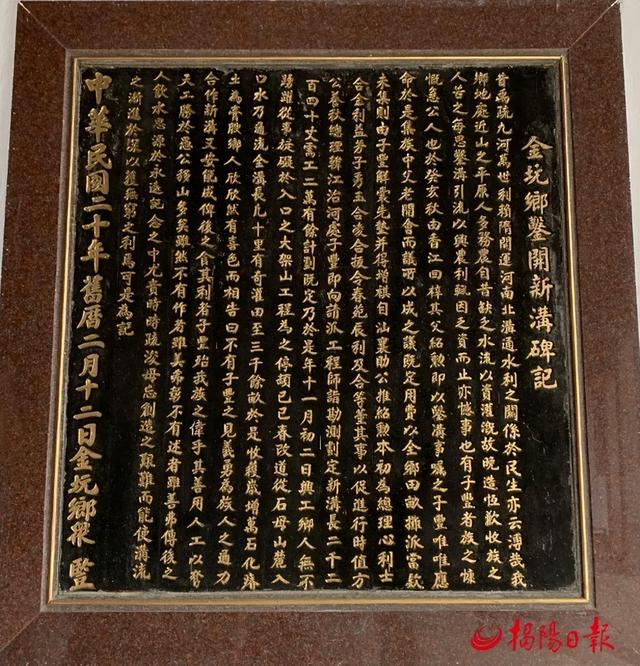 金坑鄉鑿開新溝碑記
昔禹疏九河萬世利賴隋開運河南北溝通水利之關係於民生亦云溥哉我
鄉地處近山之平原人多務農自昔缺之水流以資灌溉故晚造恆歉收族之
人苦之每思鑿溝引流以興農利輒因乏資而止亦憾事也有子豐者族之慷
慨急公人也於癸亥秋由香江回梓其父紹勳即以鑿溝事囑之子豐唯唯應
命於是集族中父老開會而議所以成之議既定用費以全鄉田畝攤派當款
未集則由子豐解囊先墊并得增祺自汕襄助公推紹勳本初為總理心利士
合金利益芽子秀玉合凌合振令春苑辰利及合等董其事以促進行時值方
公養秋總理韓江治河處子豐即向請派工程師詣勘測劃定新溝長二千二
百四十丈需工二萬有餘計劃既定乃於是年十一月初二日興工鄉人無不
踴躍從事徒礙於入口之大架山工程為之停頓己巳春改道從石母山麓入
口水乃通流全溝長凡十里有奇灌田至三千餘畝於是收穫歲增萬石化瘠
土為膏腴鄉人欣欣然有喜色而相告曰不有子豐之見義勇為族人之通力
合作新溝又安能成俾後之食其利者子豐貽我族之偉乎其善用人工以奪
天工勝於愚公移山多矣雖然不有作者雖美弗彰不有述者雖善弗傳後之
人飲水思源於永遠記念之中尤貴時時疏浚毋忘創造之艱難而能使溝流
之漸進於深以獲無窮之利焉可是為記
中華民國二十年舊曆二月十二日金坑鄉眾 監
揭陽日報